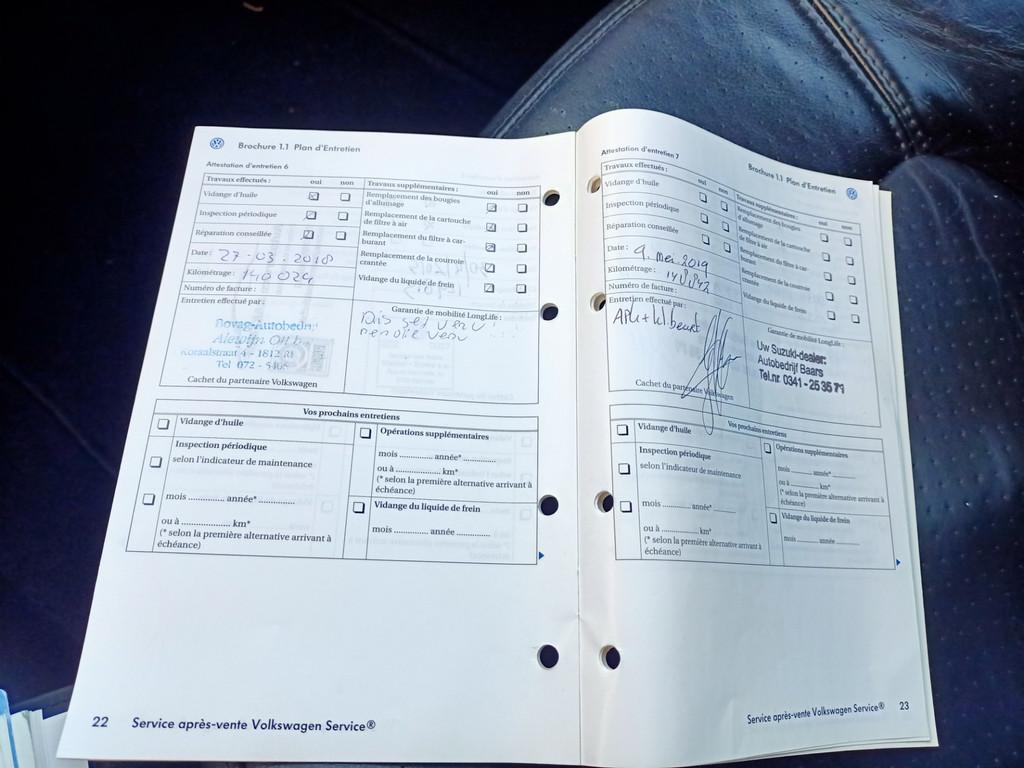 Brochure 1.1 Plan d'Entretien
Attestation d'entretien 6
Travaux effectués : oui non
Vidange d'huile
Inspection périodique
Réparation conseillée
Date : 27-03.2018
Kilométrage : 140024
Numéro de facture :
Entretien effectué par :
Bovag-Autobedrij
Koraalstraat 4 - 1812 RK
Tel 072 -
Cachet du partenaire Volkswagen
Travaux supplémentaires : oui non
Remplacement des bougies
d'allumage
Remplacement de la cartouche
de filtre à air
Remplacement du filtre à car-
burant
Remplacement de la courroie
crantée
Vidange du liquide de frein
Garantie de mobilité LongLife :
Vos prochains entretiens
Vidange d'huile
Inspection périodique
selon l'indicateur de maintenance
mois .............. année* ..............
ou à .................... km*
(* selon la première alternative arrivant à
échéance)
Opérations supplémentaires
mois .............. année* .............
ou à .................. km*
(* selon la première alternative arrivant à
échéance)
Vidange du liquide de frein
mois ............. année .............
22 Service après-vente Volkswagen Service®
Brochure 1.1 Plan d'Entretien
Attestation d'entretien 7
Travaux effectués : oui non
Vidange d'huile
Inspection périodique
Réparation conseillée
Date : 9. Mei 2019
Kilométrage : 148.842
Numéro de facture :
Entretien effectué par :
APK + kl beurt
Cachet du partenaire Volkswagen
Travaux supplémentaires : oui non
Remplacement des bougies
d'allumage
Remplacement de la cartouche
de filtre à air
Remplacement du filtre à car-
burant
Remplacement de la courroie
crantée
Vidange du liquide de frein
Garantie de mobilité LongLife :
Uw Suzuki-dealer:
Autobedrijf Baars
Tel.nr. 0341 - 25 35 71
Vos prochains entretiens
Vidange d'huile
Inspection périodique
selon l'indicateur de maintenance
mois .............. année* ..............
ou à .................... km*
(* selon la première alternative arrivant à
échéance)
Opérations supplémentaires
mois .......... année* ..........
ou à .............. km*
(* selon la première alternative arrivant à
échéance)
Vidange du liquide de frein
mois .......... année ..........
Service après-vente Volkswagen Service® 23